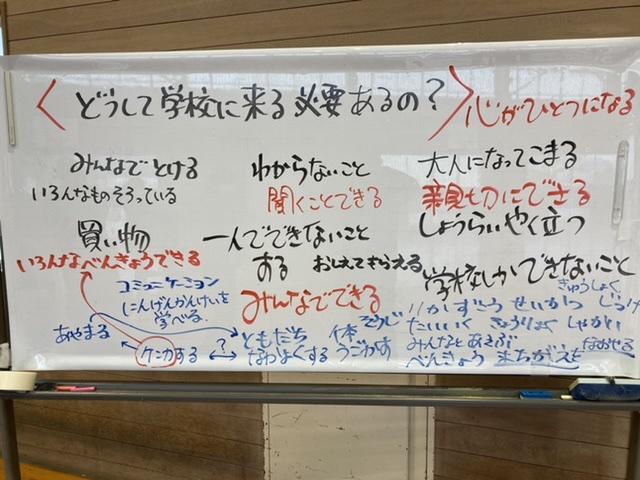 〈どうして学校に来る必要あるの？〉
心がひとつになる
みんなでとける
いろんなものそろっている
買い物
いろんなべんきょうできる
コミュニケーション
にんげんかんけいを
学べる。
あやまる
ケンカする ←?→
ともだち
なかよくする
わからないこと
聞くことできる
一人でできないこと
する おしえてもらえる
みんなでできる
体 そうじ
うごかす
大人になってこまる
親切にできる
しょうらいやく立つ
学校しかできないこと
きゅうしょく
りか ずこう せいかつ じっけん
たいいく きょうりょく しゃかい
みんなとあそぶ
べんきょう まちがえを なおせる